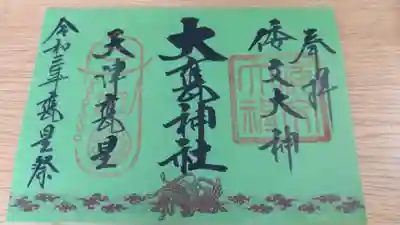 奉拝
倭文大神
大甕神社
天津甕星
令和三年甕星祭